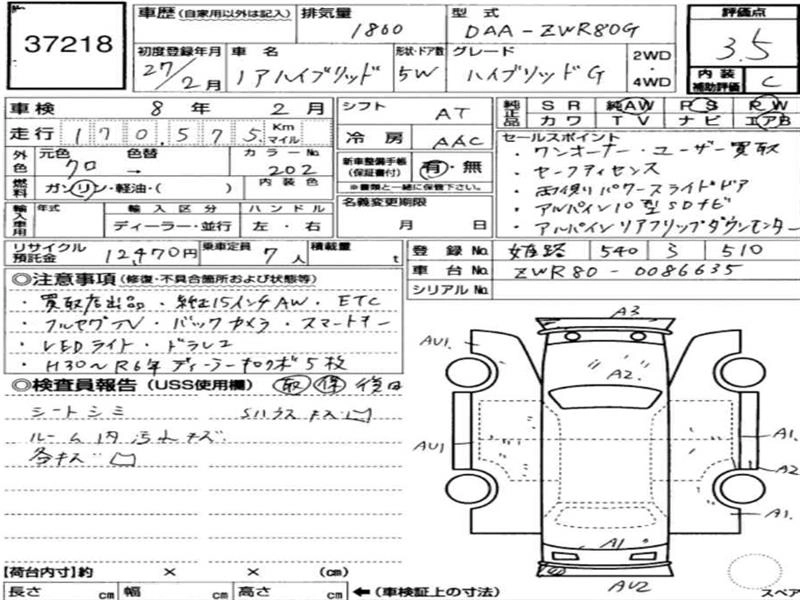 37218
車歴 (自家用以外は記入)
排気量 1800
型式 DAA-ZWR80G
評価点 3.5
内装補助評価 C
初度登録年月 27/2月
車名 ノアハイブリッド
形状・ドア数 5W
グレード ハイブリッドG
2WD・4WD
車検 8年 2月
シフト AT
純正品 SR 純AW PS PW
カワ TV ナビ エアB
走行 170,575 Km マイル
冷房 AAC
セールスポイント
・ワンオーナー・ユーザー買取
・セーフティセンス
・両側パワースライドドア
・アルパイン10型SDナビ
・アルパインリアフリップダウンモニター
外色 元色 クロ 色替 → カラーNo. 202
新車整備手帳(保証書付) 有・無
※書類と一緒に保管下さい。
燃料 ガソリン・軽油・( ) 内装色
輸入車用 年式 輸入区分 ディーラー・並行 ハンドル 左・右
名義変更期限 月 日
リサイクル預託金 12,470円 乗車定員 7人 積載量 t
登録No. 姫路 540 ろ 510
車台No. ZWR80-0086635
シリアルNo.
◎注意事項 (修復・不具合箇所および状態等)
・買取店出品・純正15インチAW・ETC
・フルセグTV・バックカメラ・スマートキー
・LEDライト・ドラレコ
・H30〜R6年ディーラー記録簿5枚
◎検査員報告 (USS使用欄) 取 保 後日
シートシミ
ルーム内汚れキズ
各キズ凹
A3
AU1
A2
AU1
A1
A2
A1
A1
AU2
スペア
【荷台内寸】約 × × (cm)
長さ cm 幅 cm 高さ cm ←(車検証上の寸法)